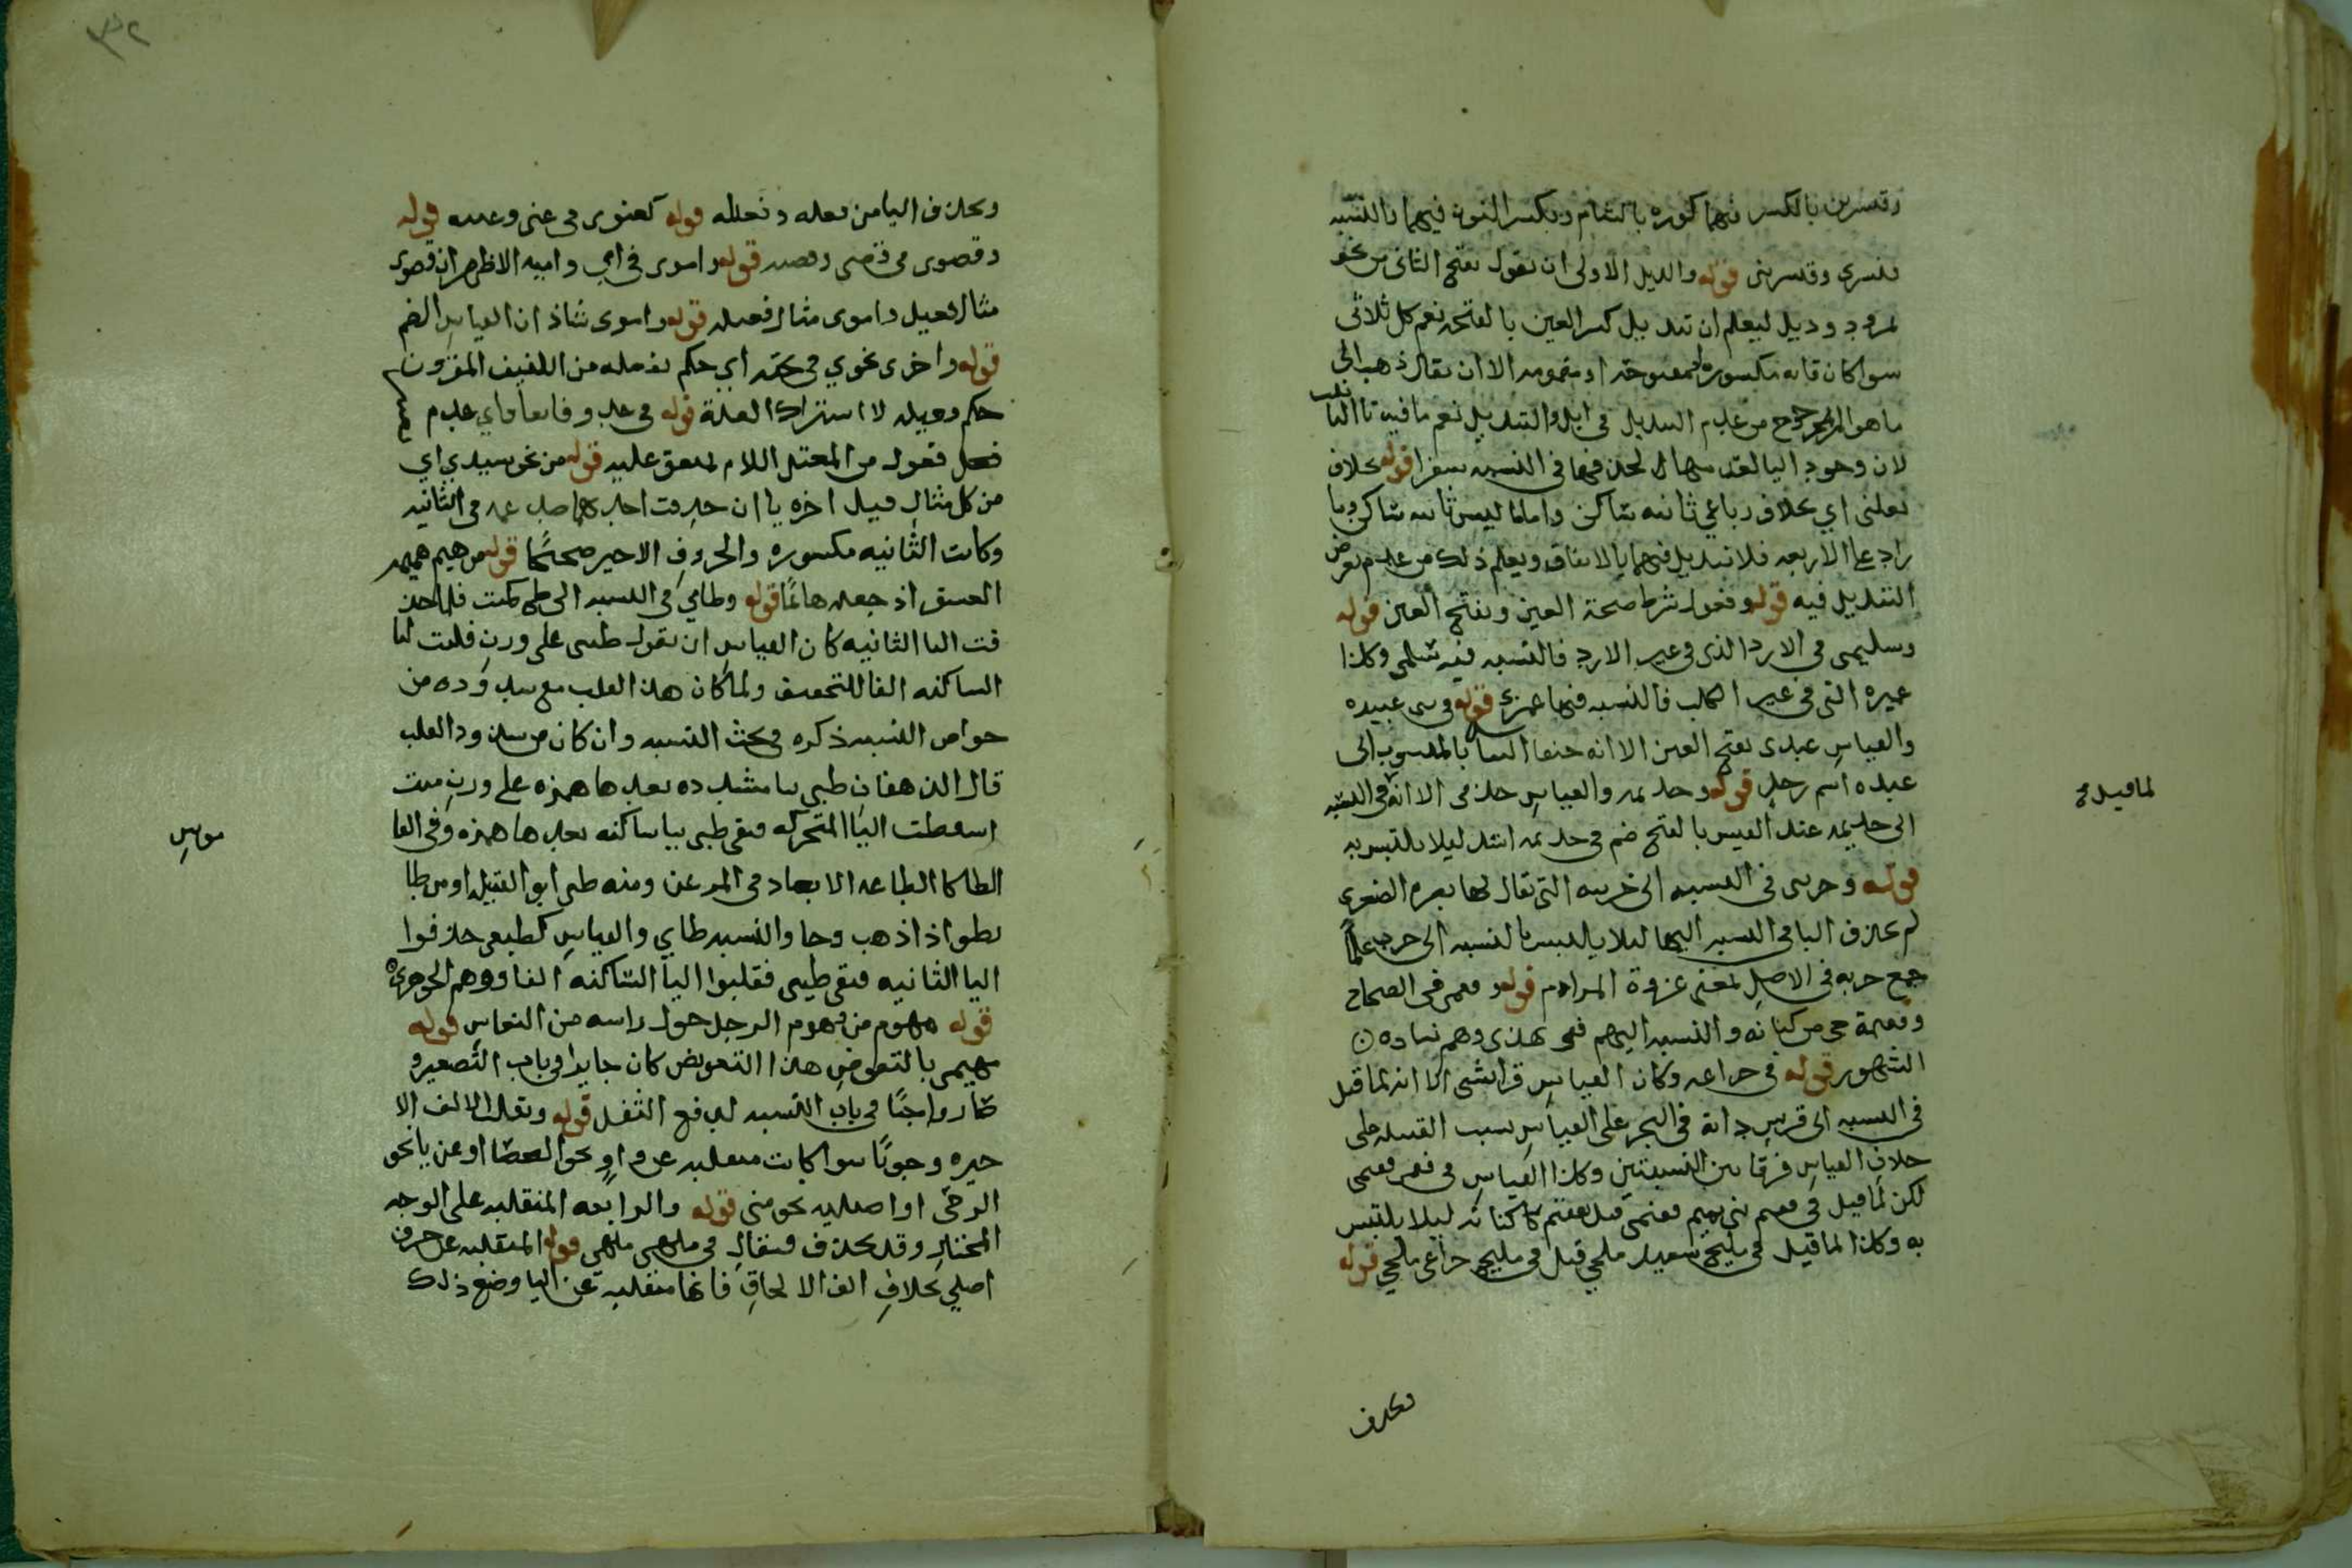 وقنسرين بالكسر فيهما كورة بالشام وبكسر النون فيهما فالنسبة
قنسرى وقنسرينى قوله والديل الاولى ان يقول بفتح الثانى من نحو
نمر ود وديل ليعلم ان تبديل كسر العين بالفتحه نعم كل ثلاثى
سوا كان فاه مكسوره او مفتوحة او مضمومه الا ان يقال ذهب الى
ما هو المرجوح من عدم التبديل فى ابل والتبديل نعم ما فيه تا التا
لان وجود اليا لحذفها فى النسبه قوله بخلاف
تغلبى اي بخلاف رباعي ثانيه ساكن واما ما ليس ثانيه ساكن وما
زاد على الاربعه فلا تبديل فيهما بالاتفاق ويعلم ذلك من عدم تعرض
التبديل فيه قوله وفعوله بشرط صحة العين وبفتح العين قوله
وسليمى فى الازد الذى فى غير الازد فالنسبه فيه سلمى وكذا
عميره التى فى غير الكلب فالنسبه فيها عمرى قوله فى بنى عبيده
والقياس عبدى بفتح العين الا انه بالمنسوب الى
عبده اسم رجل قوله وجذيمه والقياس جذمى الا انه فى النسبه
الى جذيمه عبد القيس بالفتح ضم فى جذيمه اسد ليلا يلتبس به
قوله وخريبى فى النسبه الى خريبه التى يقال لها بصره الصغرى
لم يحذف اليا فى النسبه اليها ليلا يلتبس بالنسبه الى خرب علما
جمع خربه فى الاصل بمعنى عزوة المزادم قوله وفقمى فى الصحاح
وفقيمة حى من كنانه والنسبه اليهم فقمى وهم نساده
الشهور قوله فى خزاعه وكان القياس قرايشى الا انه لما قيل
فى النسبه الى قريش دابة فى البحر على القياس نسبت القبيله على
خلاف القياس فرقا بين النسبتين وكذا القياس فى فقيم فقيمى
لكن لما قيل فى فقيم بنى تميم فقيمى قيل فقيم كنانه ليلا يلتبس
به وكذا لما قيل فى مليح سعيد مليحي قيل فى مليح خزاعى ملحي قوله
لما قيل
وتحذف
٣٢
وتحذف اليا من فعيله وفعيله قوله كغنوى فى غنى وغنيه قوله
وقصوى فى قصى وقصيه قوله واموى فى امي واميه الاظهر ان قصوى
مثال فعيل واموى مثال فعيله قوله واموى شاذ اذ القياس الضم
قوله واخرى نحوي فى تحيه اي حكم تفعله من اللفيف المقرون
حكم فعيله لا اشتراك العلة قوله فى عدو وفاقا واي عدم
فعول من المعتل اللام لمتفق عليه قوله من نحو سيدي اي
من كل مثال قبل اخره يا ان حذفت احديهما فى الثانيه
وكانت الثانيه مكسوره والحروف الاخير صحيحا قوله من هيم هيمه
العشق اذ جعله هايما قوله وطايي فى النسبه الى طي كميت فلما حذ
فت اليا الثانيه كان القياس ان يقول طيىى على وزن فقلبت اليا
الساكنه الفا للتخفيف ولما كان هذا القلب مع شذوذه من
خواص النسبه ذكره فى بحث النسبه وان كان من شذوذ القلب
قال الدهقان طيى بيا مشدده بعدها همزه على وزن ميت
اسقطت اليا المتحركه فبقى طيى بيا ساكنه بعدها همزه وفى القا
موس
الطا كالطاعه الابعاد فى المرعى ومنه طيى ابو القبيله او من طا
يطو اذا ذهب وجا والنسبه طاي والقياس كطيعى حذفوا
اليا الثانيه فبقى طيى فقلبوا اليا الساكنه الفا ووهم الجوهرى
قوله مهوم من هوم الرجل حول راسه من النعاس قوله
مهيمى بالتعويض هذا التعويض كان جايزا فى باب التصغير و
صار واجبا فى باب النسبه لدفع الثقل قوله وتقلب الالف الا
خيره وجوبا سوا كانت منقلبه عن واو نحو العصا او عن يا نحو
الرحى او اصليه نحو متى قوله والرابعه المنقلبه على الوجه
المختار وقد تحذف فيقال فى ملهى ملهى قوله المنقلبه عن حرف
اصلي بخلاف الف الالحاق فانها منقلبه عن اليا وضع ذلك